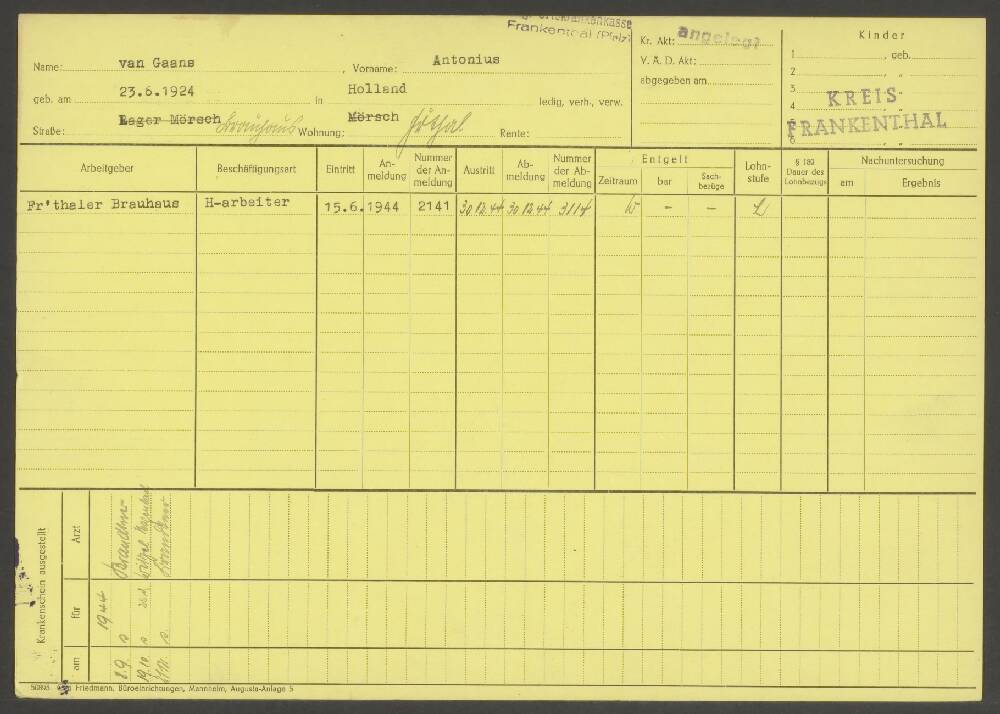 Ortskrankenkasse
Frankenthal (Pfalz)
Name: van Gaans , Vorname: Antonius
geb. am 23.6.1924 in Holland ledig, verh., verw.
Straße: Lager Mörsch Brauhaus Wohnung: Mörsch Rente:
Kr. Akt: angelegt
V. Ä. D. Akt:
abgegeben am
Kinder
1 , geb.
2 „ „
3
4
6 „ „
KREIS
FRANKENTHAL
Arbeitgeber Beschäftigungsart Eintritt An-meldung Nummer der An-meldung Austritt Ab-meldung Nummer der Ab-meldung Entgelt Zeitraum bar Sach-bezüge Lohn-stufe § 182 Dauer des Lohnbezugs Nachuntersuchung am Ergebnis
Fr'thaler Brauhaus H-arbeiter 15.6.1944 2141 30.12.44 30.12.44 3114 W - - L
Krankenschein ausgestellt
Arzt
für 1944
am 1.9. 19.10.
Friedmann, Büroeinrichtungen, Mannheim, Augusta-Anlage 5